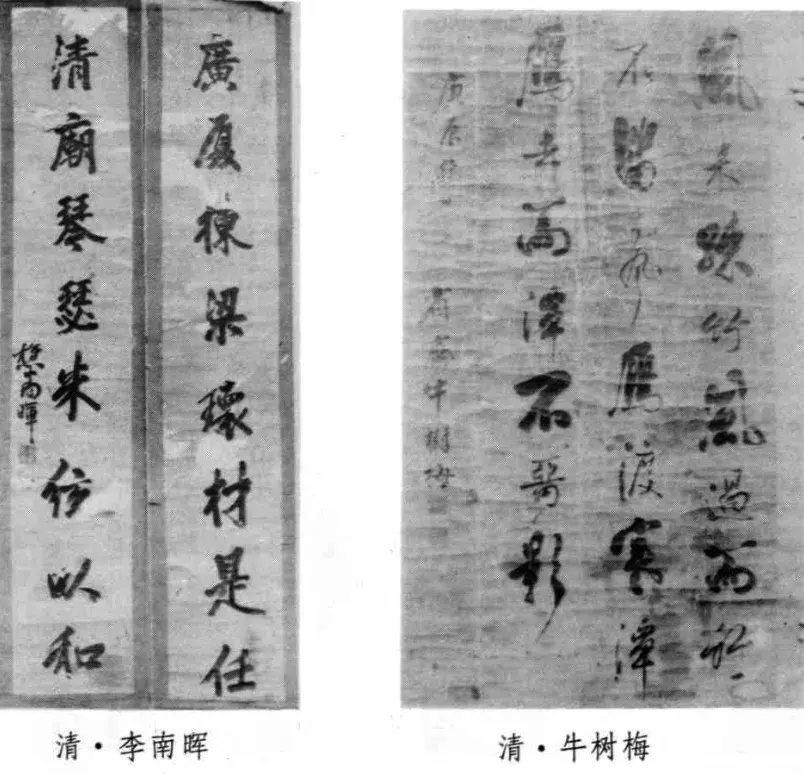 廣厦棟梁環材是任
清廟琴瑟朱以和
南暉
風来疎竹風過而
不留聲鴈渡寒潭
鴈去而潭不留影
庚辰
省齋牛樹梅
清·李南晖
清·牛树梅